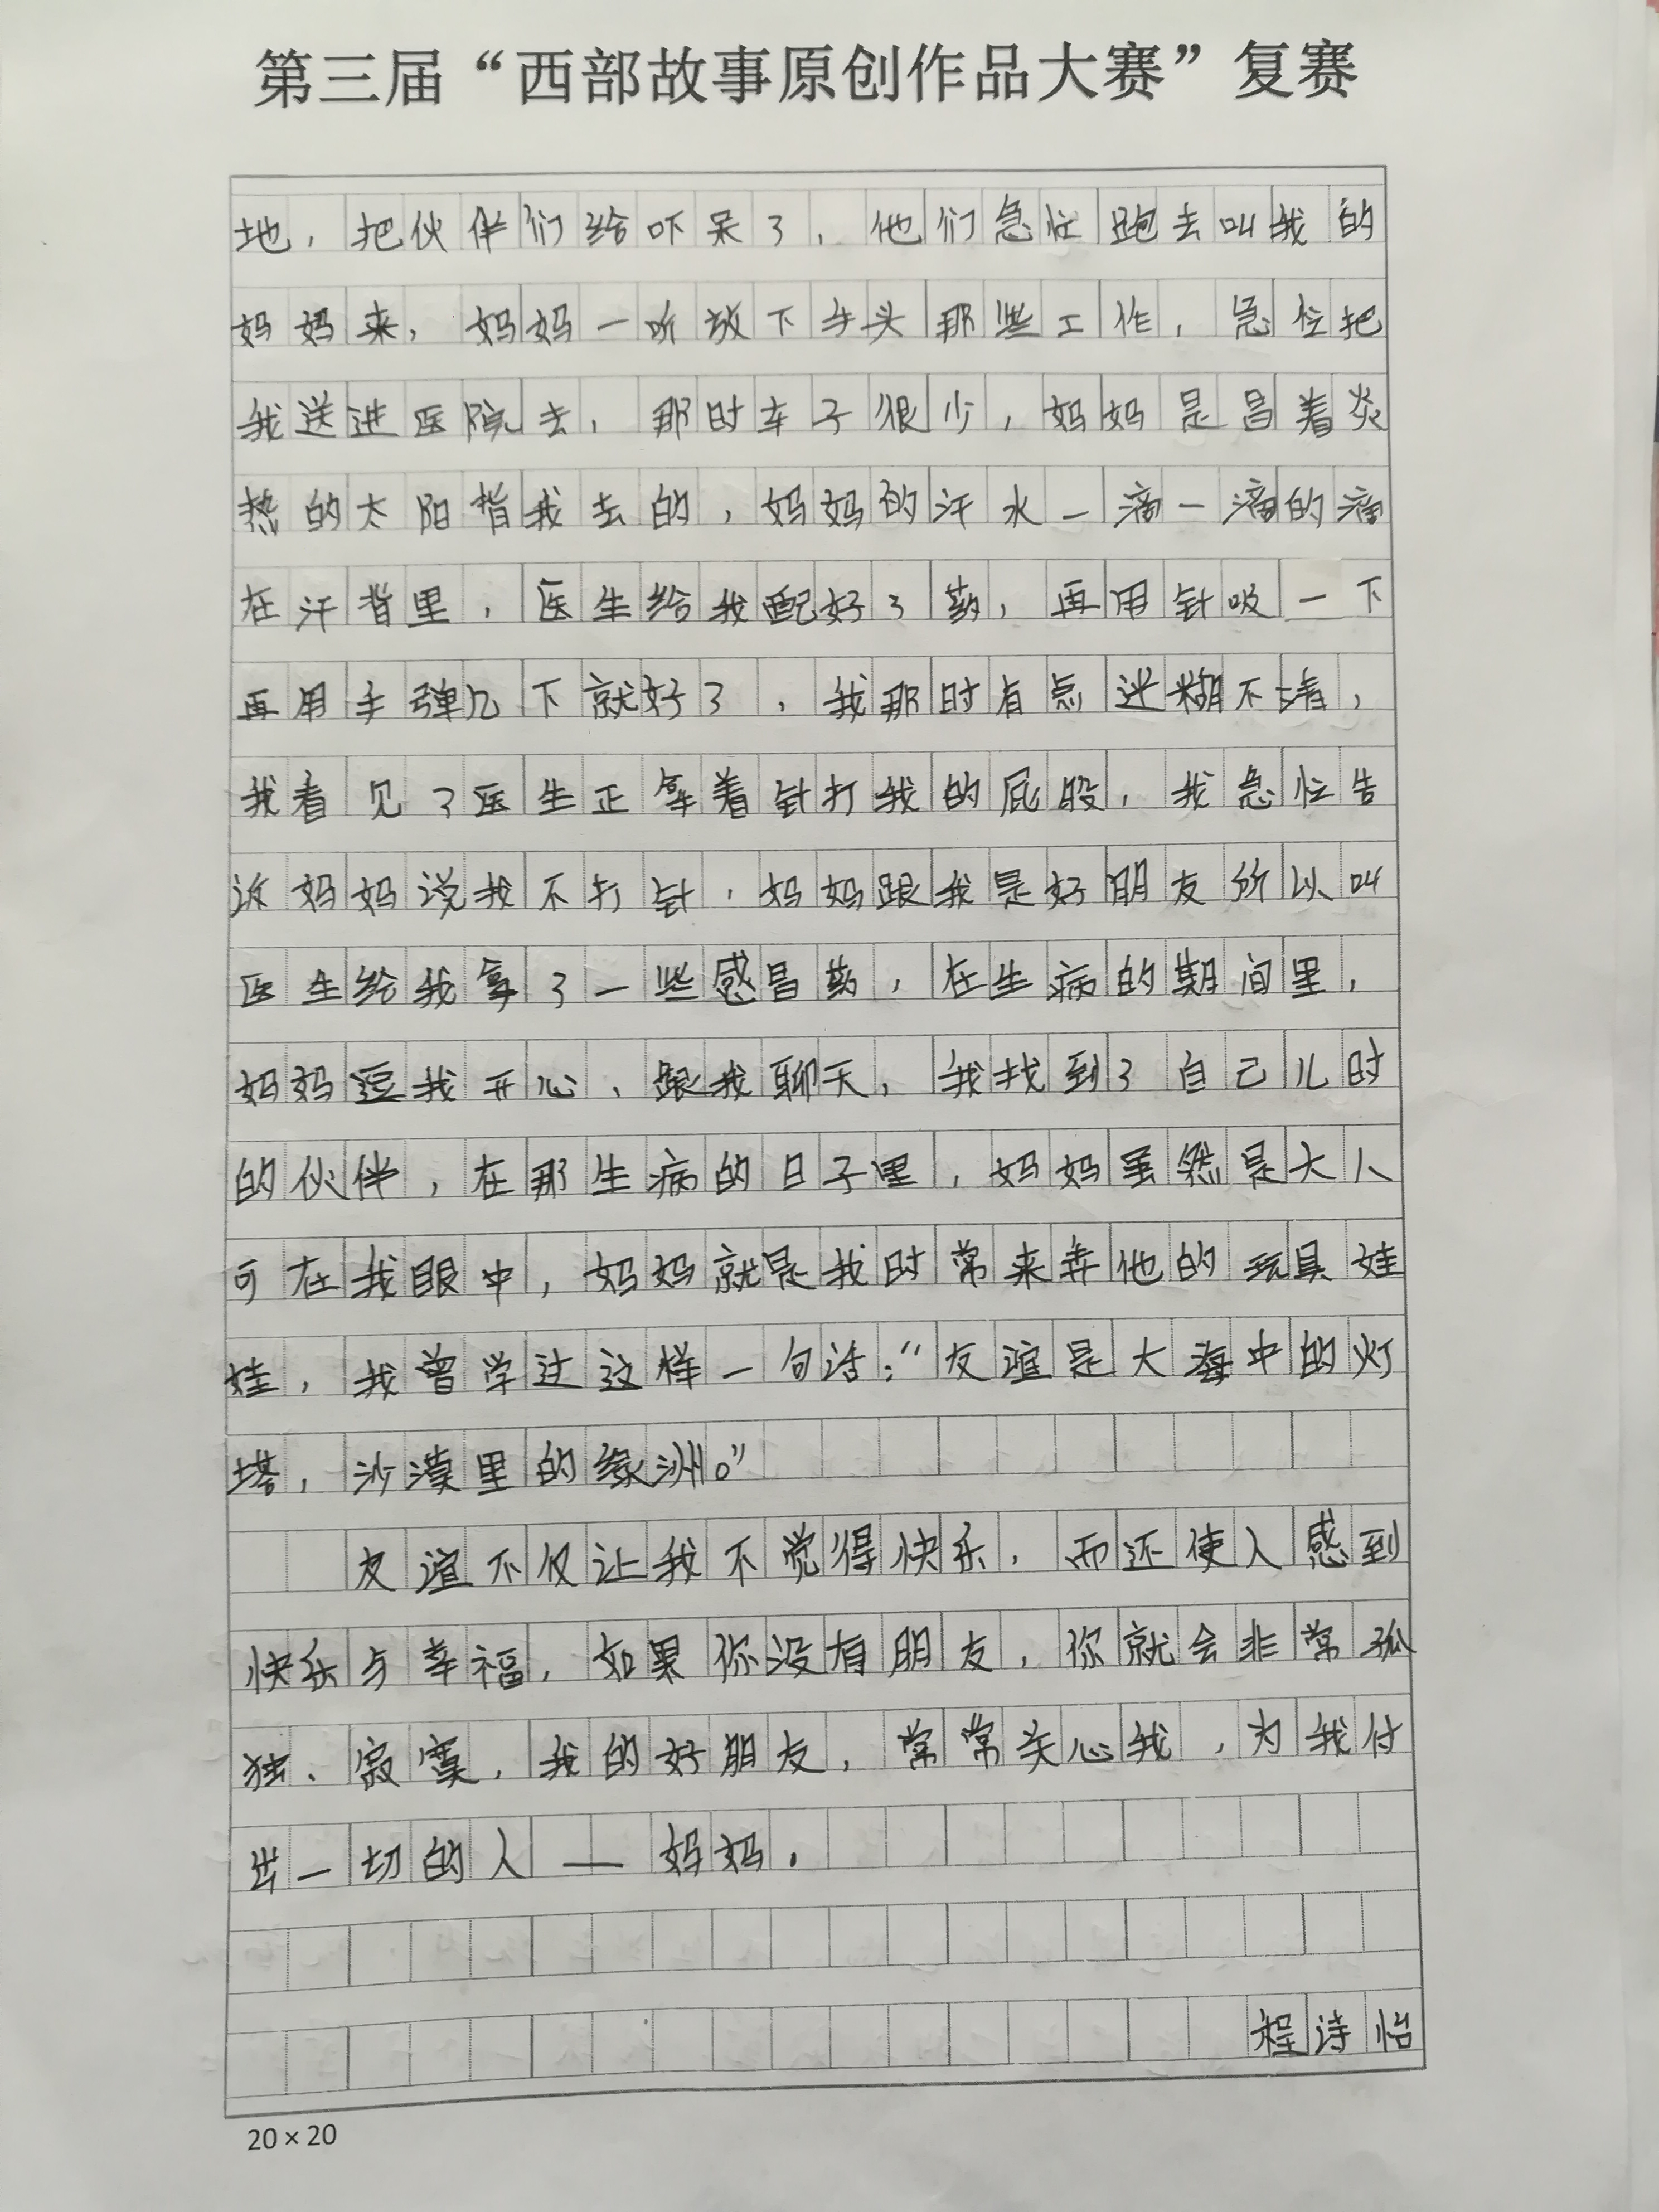 第三届“西部故事原创作品大赛”复赛
地，把伙伴们给吓呆了，他们急忙跑去叫我的
妈妈来，妈妈一听放下手头那些工作，急忙把
我送进医院去，那时车子很少，妈妈是冒着炎
热的太阳背我去的，妈妈的汗水一滴一滴的滴
在汗背里，医生给我配好了药，再用针吸一下
再用手弹几下就好了，我那时有点迷糊不清，
我看见了医生正拿着针打我的屁股，我急忙告
诉妈妈说我不打针，妈妈跟我是好朋友所以叫
医生给我拿了一些感冒药，在生病的期间里，
妈妈逗我开心、跟我聊天，我找到了自己儿时
的伙伴，在那生病的日子里，妈妈虽然是大人
可在我眼中，妈妈就是我时常来弄他的玩具娃
娃，我曾学过这样一句话：“友谊是大海中的灯
塔，沙漠里的缘洲。”
友谊不仅让我不觉得快乐，而还使人感到
快乐与幸福，如果你没有朋友，你就会非常孤
独、寂寞，我的好朋友，常常关心我，为我付
出一切的人——妈妈．
程诗怡
20×20